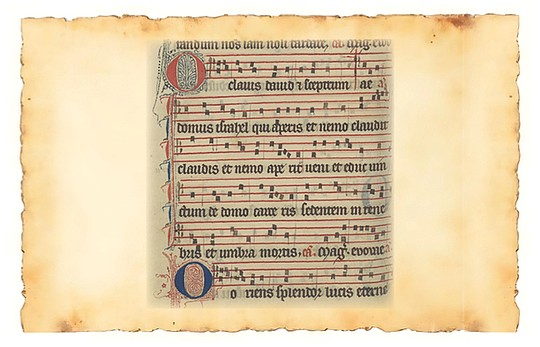 tandum nos iam noli tardare. ca. Mag. evo
O clavis david & sceptrum ae
domus israhel qui aperis et nemo claudit
claudis et nemo ape rit veni et educ vin
ctum de domo carce ris sedentem in tene
bris et umbra mortis. ca. Mag. evovae
O o riens splendor lucis eterne